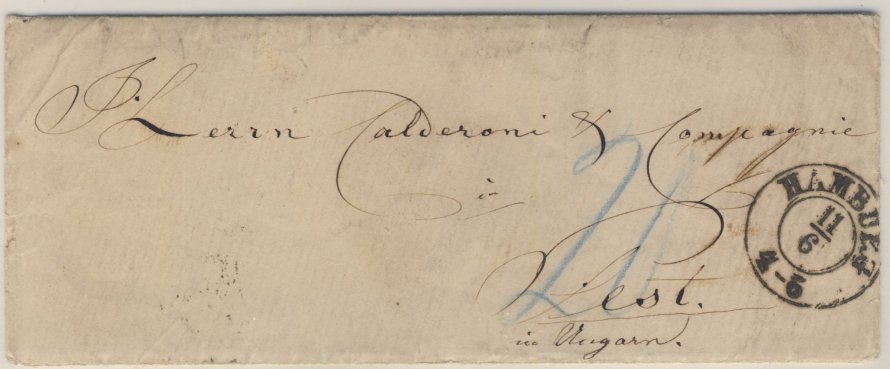 Herrn Calderoni & Compagnie
in
Pest.
in Ungarn.
20
HAMBURG
11/6
4-5